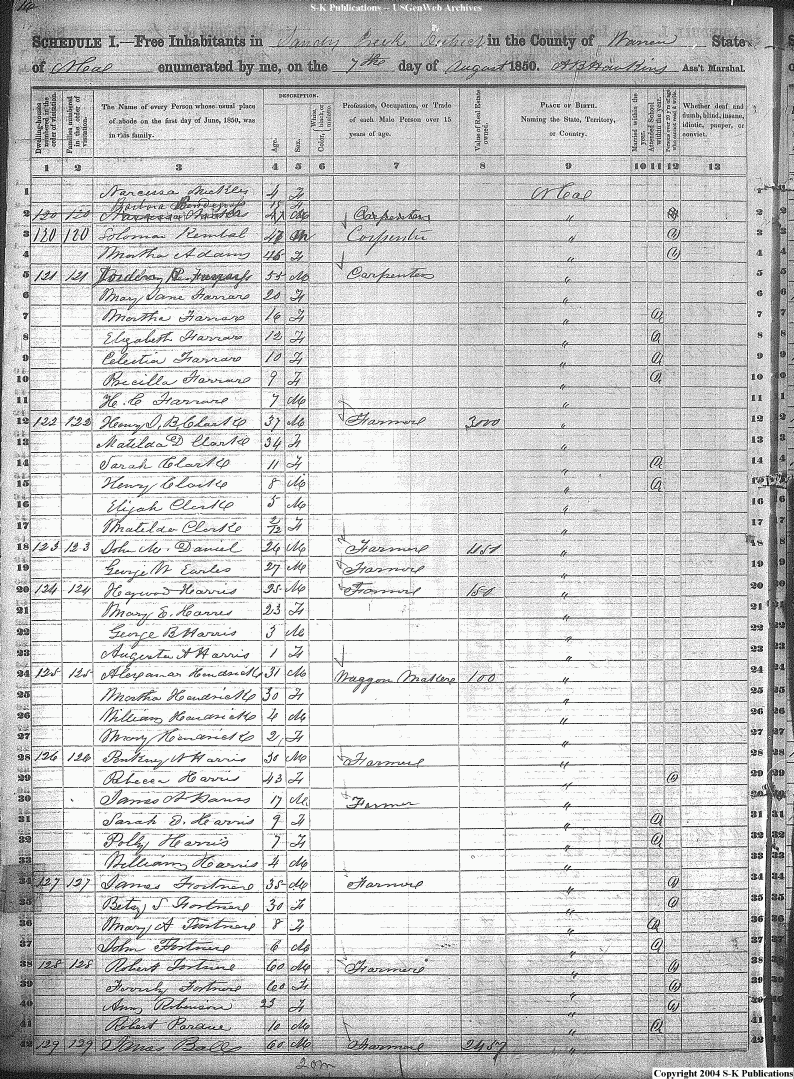 S-K Publications -- USGenWeb Archives
SCHEDULE I.—Free Inhabitants in Sandy Creek District in the County of Warren State
of N Cal enumerated by me, on the 7th day of August 1850. Ass't Marshal.
DESCRIPTION.
Dwelling-houses numbered in the order of visitation.
Families numbered in the order of visitation.
The Name of every Person whose usual place of abode on the first day of June, 1850, was in this family.
Age.
Sex.
Color, White, black, or mulatto.
Profession, Occupation, or Trade of each Male Person over 15 years of age.
Value of Real Estate owned.
PLACE OF BIRTH. Naming the State, Territory, or Country.
Married within the year.
Attended School within the year.
Persons over 20 y'rs of age who cannot read & write.
Whether deaf and dumb, blind, insane, idiotic, pauper, or convict.
1 2 3 4 5 6 7 8 9 10 11 12 13
1 Narcissa 4 F N Cal
2 120 120 Carpenter " 2
3 120 120 Soloman Kembal 47 M Carpenter " 3
4 Martha Adams 45 F " 4
5 121 121 55 M Carpenter " 5
6 Mary Jane Farrar 20 F " 6
7 Martha Farrar 16 F " 7
8 Elizabeth Farrar 12 F " 8
9 Celestia Farrar 10 F " 9
10 Pricilla Farrar 9 F " 10
11 H. C Farrar 7 M " 11
12 122 122 Henry B Clark 37 M Farmer 3000 " 12
13 Matilda D Clark 34 F " 13
14 Sarah Clark 11 F " 14
15 Henry Clark 8 M " 15
16 Elijah Clark 5 M " 16
17 Matilda Clark 2/12 F " 17
18 123 123 John M. Daniel 24 M Farmer 450 " 18
19 George W Earles 27 M Farmer " 19
20 124 124 Haywood Harris 25 M Farmer 150 " 20
21 Mary E. Harris 23 F " 21
22 George B Harris 3 M " 22
23 Augusta A Harris 1 F " 23
24 125 125 Alexander Hendrick 31 M Waggon Maker 100 " 24
25 Martha Hendrick 30 F " 25
26 William Hendrick 4 M " 26
27 Mary Hendrick 2 F " 27
28 126 126 Pinkney A Harris 30 M Farmer " 28
29 Rebecca Harris 43 F " 29
30 James A Harris 17 M Farmer " 30
31 Sarah D. Harris 9 F " 31
32 Polly Harris 7 F " 32
33 William Harris 4 M " 33
34 127 127 James Fortner 35 M Farmer " 34
35 Betsy S Fortner 30 F " 35
36 Mary A Fortner 8 F " 36
37 John Fortner 6 M " 37
38 128 128 Robert Fortner 60 M Farmer " 38
39 Fortner 60 F " 39
40 Amy Robinson 23 F " 40
41 Robert Pardue 10 M " 41
42 129 129 James Ball 60 M Farmer 2457 " 42
20 m
Copyright 2004 S-K Publications